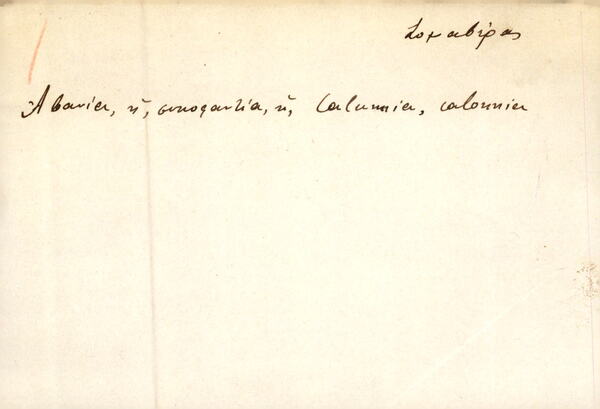 Σομαβέρας
Ἀβανία, ἡ, συκοφαντία, ἡ, Calunnia, calonnia